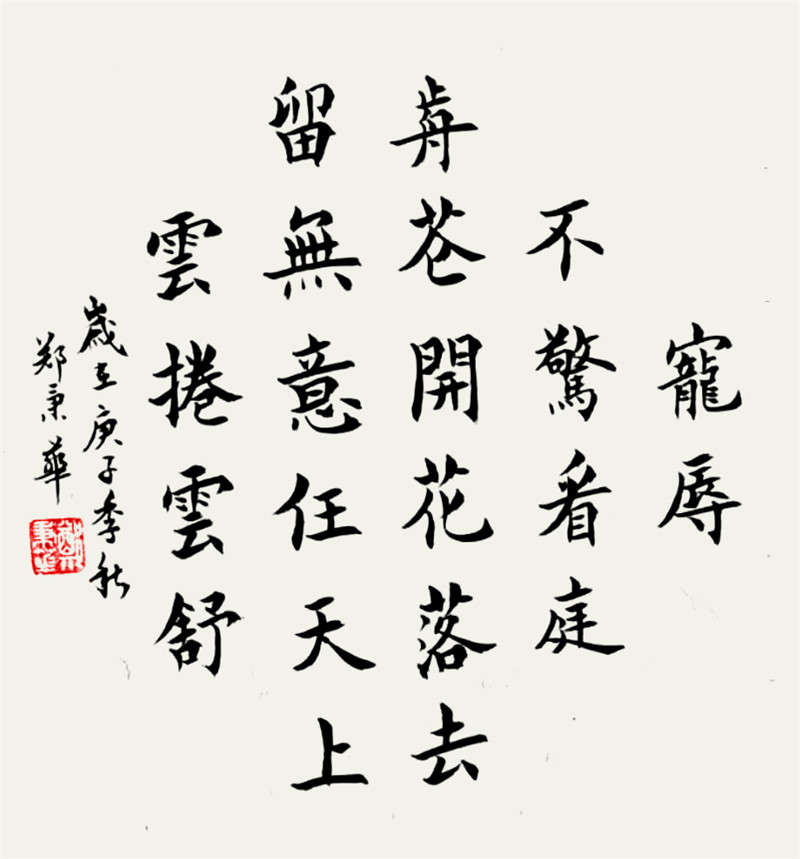 寵辱
不驚看庭
歬花開花落去
留無意任天上
雲捲雲舒
歲在庚子季秋
郑秉華